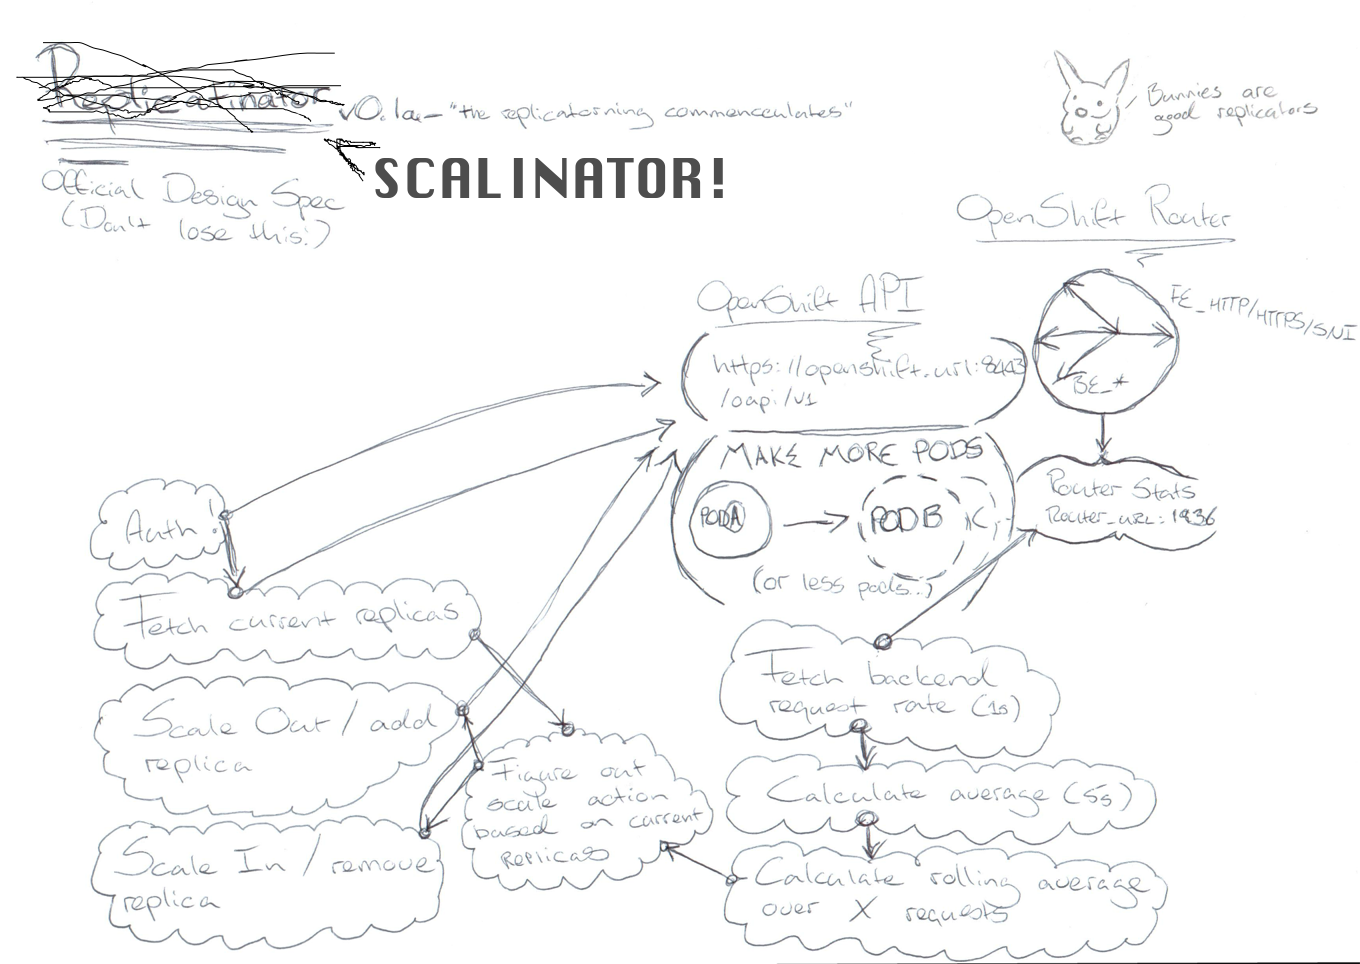 Replicatinator v0.1a - "the replicatorning commenceulates"
SCALINATOR!
Official Design Spec
(Don't lose this!)
Bunnies are
good replicators
OpenShift Router
FE_HTTP/HTTPS/SNI
BE_*
OpenShift API
https://openshift.url:8443
/oapi/v1
MAKE MORE PODS
POD A
POD B
(or less pods..)
Router Stats
Router_URL:1936
Auth!
Fetch current replicas
Scale Out / add
replica
Scale In / remove
replica
Figure out
scale action
based on current
Replicas
Fetch backend
request rate (1s)
Calculate average (5s)
Calculate rolling average
over X requests